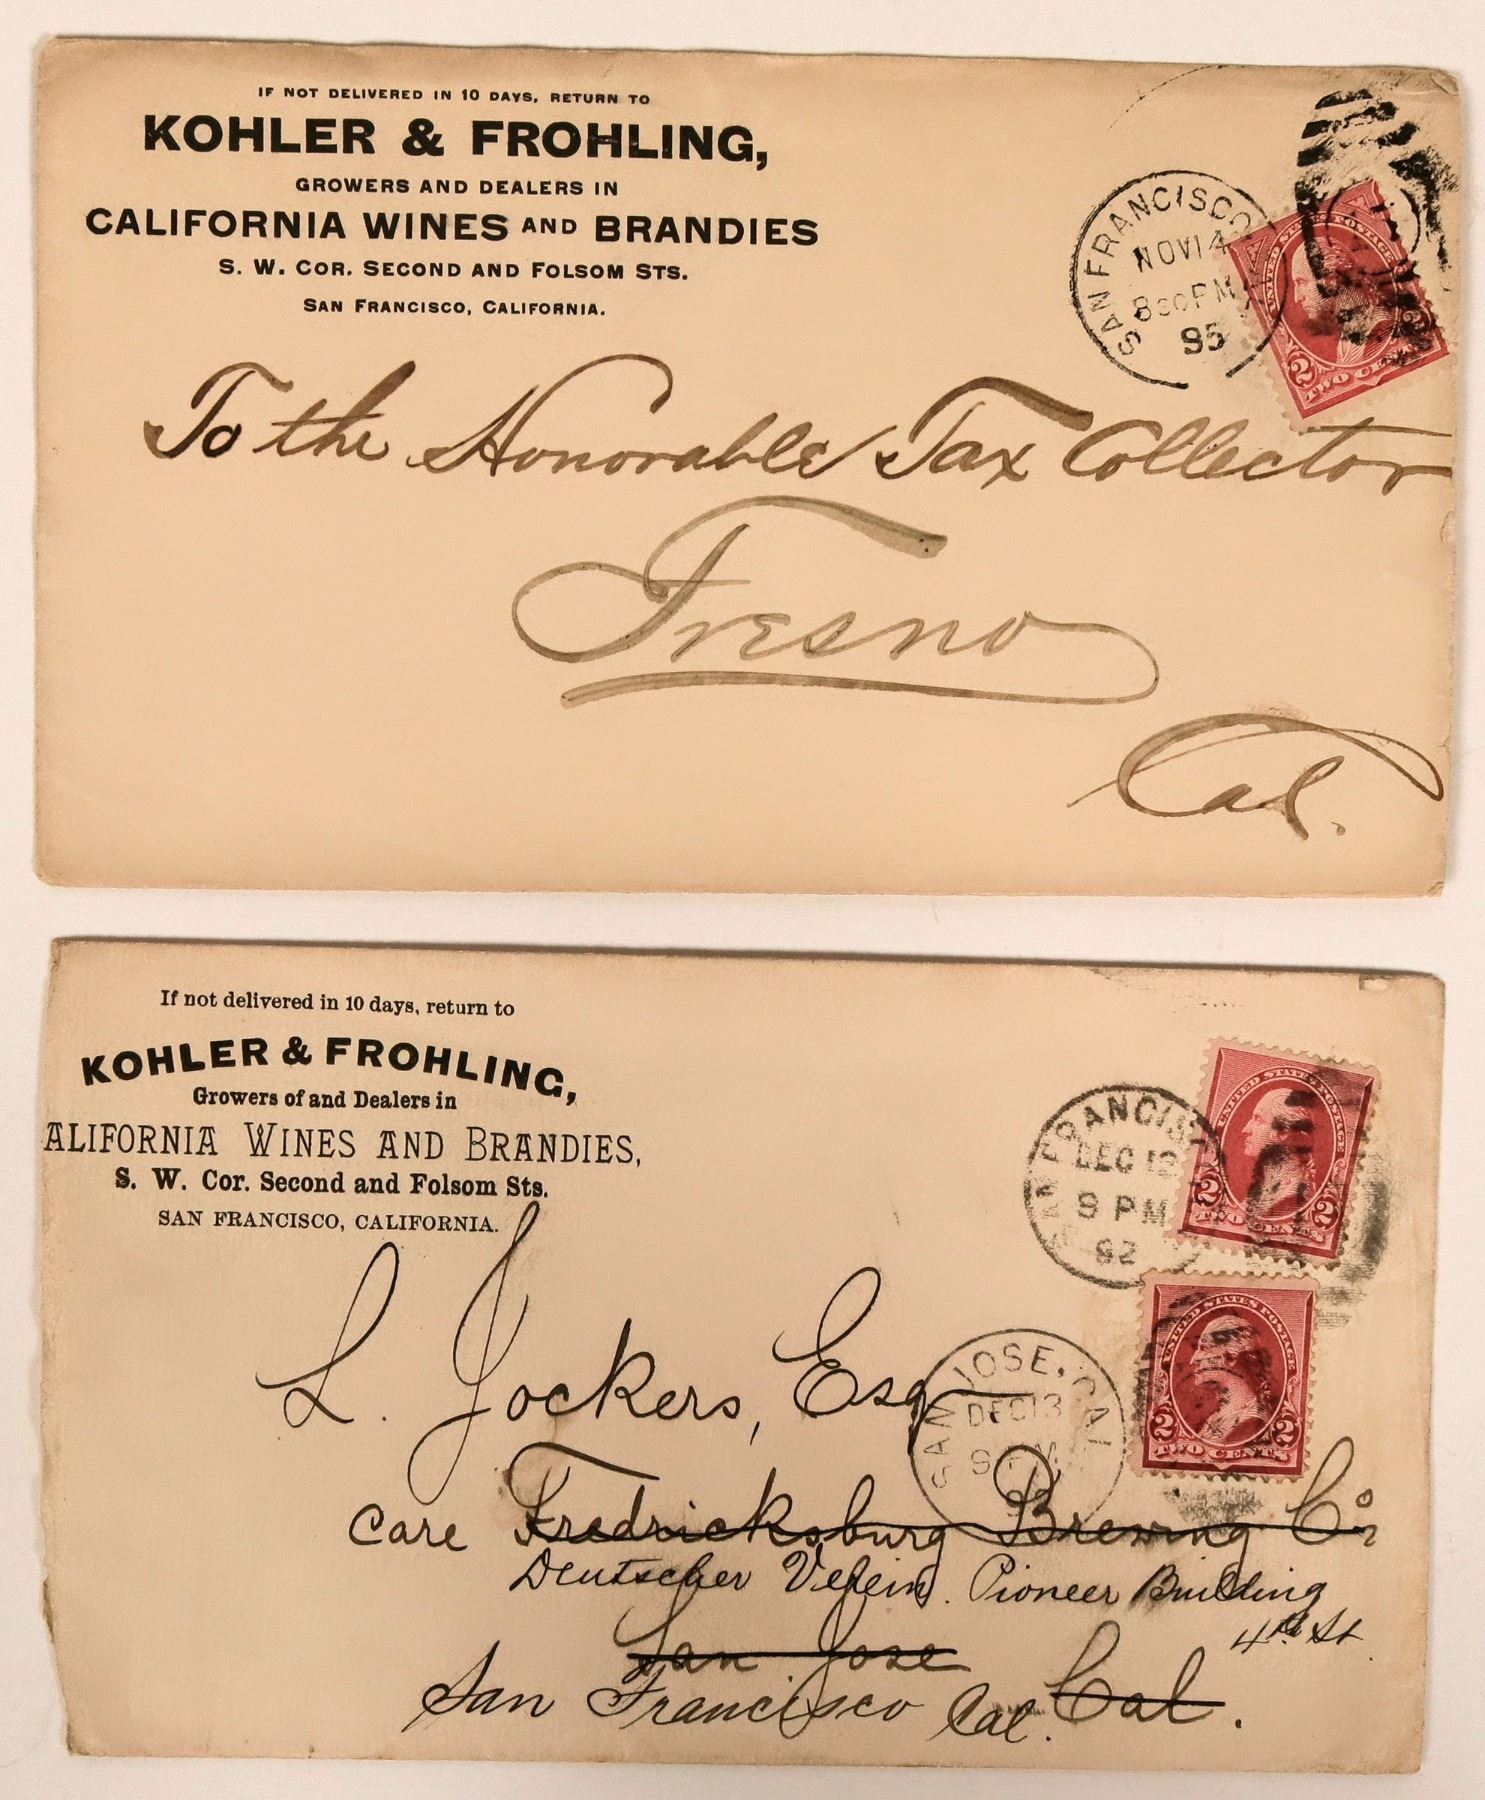 IF NOT DELIVERED IN 10 DAYS, RETURN TO
KOHLER & FROHLING,
GROWERS AND DEALERS IN
CALIFORNIA WINES AND BRANDIES
S. W. COR. SECOND AND FOLSOM STS.
SAN FRANCISCO, CALIFORNIA.
SAN FRANCISCO
NOV 14
830 PM
95
UNITED STATES POSTAGE
2 2
TWO CENTS
To the Honorable Tax Collector
Fresno
Cal.
If not delivered in 10 days, return to
KOHLER & FROHLING,
Growers of and Dealers in
ALIFORNIA WINES AND BRANDIES,
S. W. Cor. Second and Folsom Sts.
SAN FRANCISCO, CALIFORNIA.
SAN FRANCISC
DEC 12
9 PM
92
UNITED STATES POSTAGE
2 2
TWO CENTS
UNITED STATES POSTAGE
2 2
TWO CENTS
SAN JOSE, CAL
DEC 13
L. Jockers, Esq
Care Fredricksburg Brewing Co
Deutscher Verein. Pioneer Building
4th St
San Jose
San Francisco Cal. Cal.